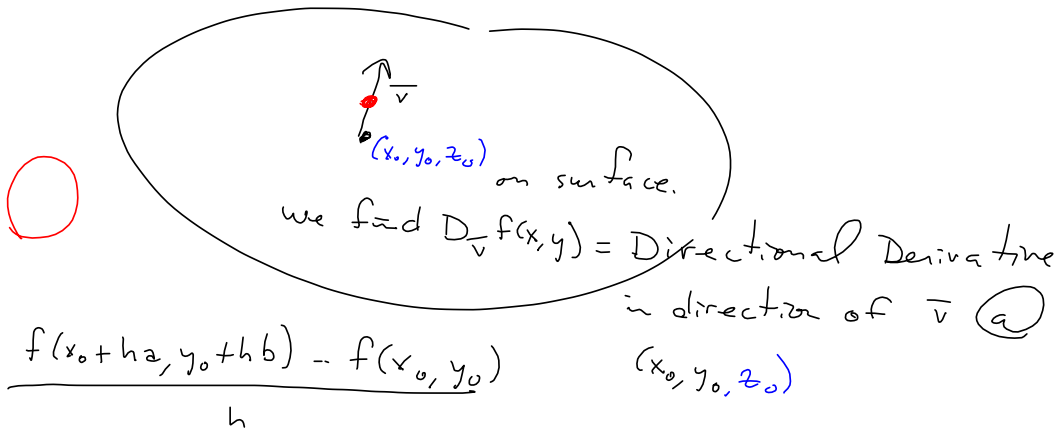 v̅
(x₀, y₀, z₀)
on surface.
we find D_v̅ f(x,y) = Directional Derivative
in direction of v̅ @
(x₀, y₀, z₀)
f(x₀+ha, y₀+hb) - f(x₀, y₀)
h